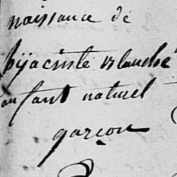 naissance de
hyacinte blanché
enfant naturel
garçon